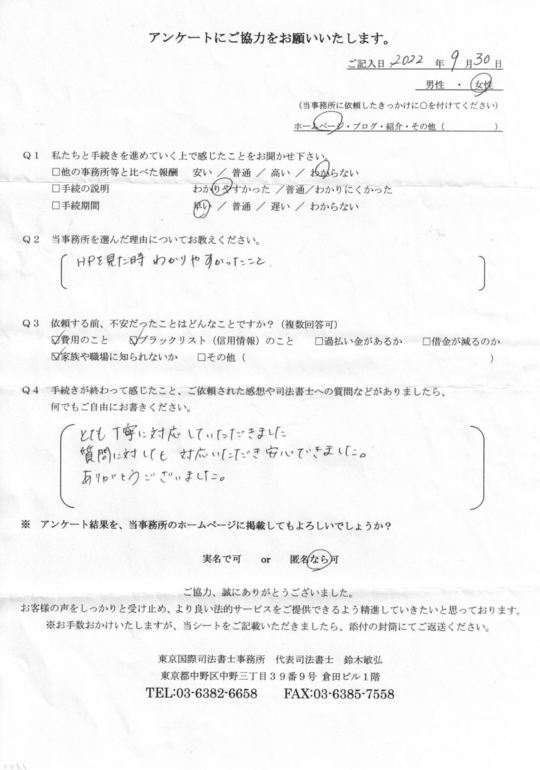 アンケートにご協力をお願いいたします。
ご記入日 2022 年 9 月 30 日
男性 ・ 女性
(当事務所に依頼したきっかけに○を付けてください)
ホームページ・ブログ・紹介・その他 ( )
Q1 私たちと手続きを進めていく上で感じたことをお聞かせ下さい。
□他の事務所等と比べた報酬 安い / 普通 / 高い / わからない
□手続の説明 わかりやすかった /普通/わかりにくかった
□手続期間 早い / 普通 / 遅い / わからない
Q2 当事務所を選んだ理由についてお教えください。
HPを見た時 わかりやすかったこと
Q3 依頼する前、不安だったことはどんなことですか?(複数回答可)
☑費用のこと ☑ブラックリスト(信用情報)のこと □過払い金があるか □借金が減るのか
☑家族や職場に知られないか □その他 ( )
Q4 手続きが終わって感じたこと、ご依頼された感想や司法書士への質問などがありましたら、
何でもご自由にお書きください。
とても丁寧に対応していただきました
質問に対しても 対応いただき安心できました。
ありがとうございました。
※ アンケート結果を、当事務所のホームページに掲載してもよろしいでしょうか?
実名で可 or 匿名なら可
ご協力、誠にありがとうございました。
お客様の声をしっかりと受け止め、より良い法的サービスをご提供できるよう精進していきたいと思っております。
※お手数おかけいたしますが、当シートをご記載いただきましたら、添付の封筒にてご返送ください。
東京国際司法書士事務所 代表司法書士 鈴木敏弘
東京都中野区中野三丁目39番9号 倉田ビル1階
TEL:03-6382-6658 FAX:03-6385-7558